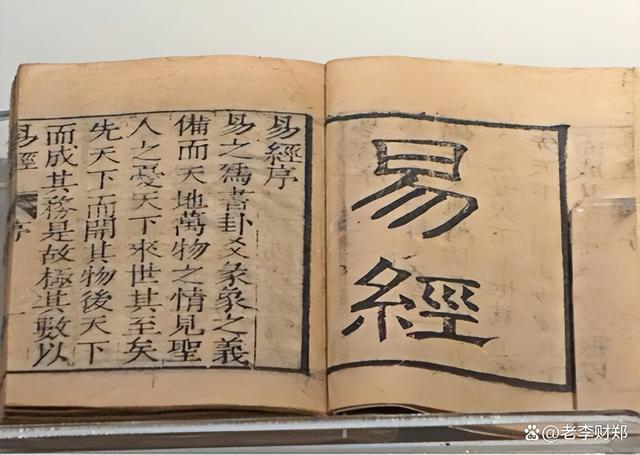 易經
易經序
易之爲書卦爻彖象之義
備而天地萬物之情見聖
人之憂天下來世其至矣
先天下而開其物後天下
而成其務是故極其數以
易經 序 一
@老李财郑